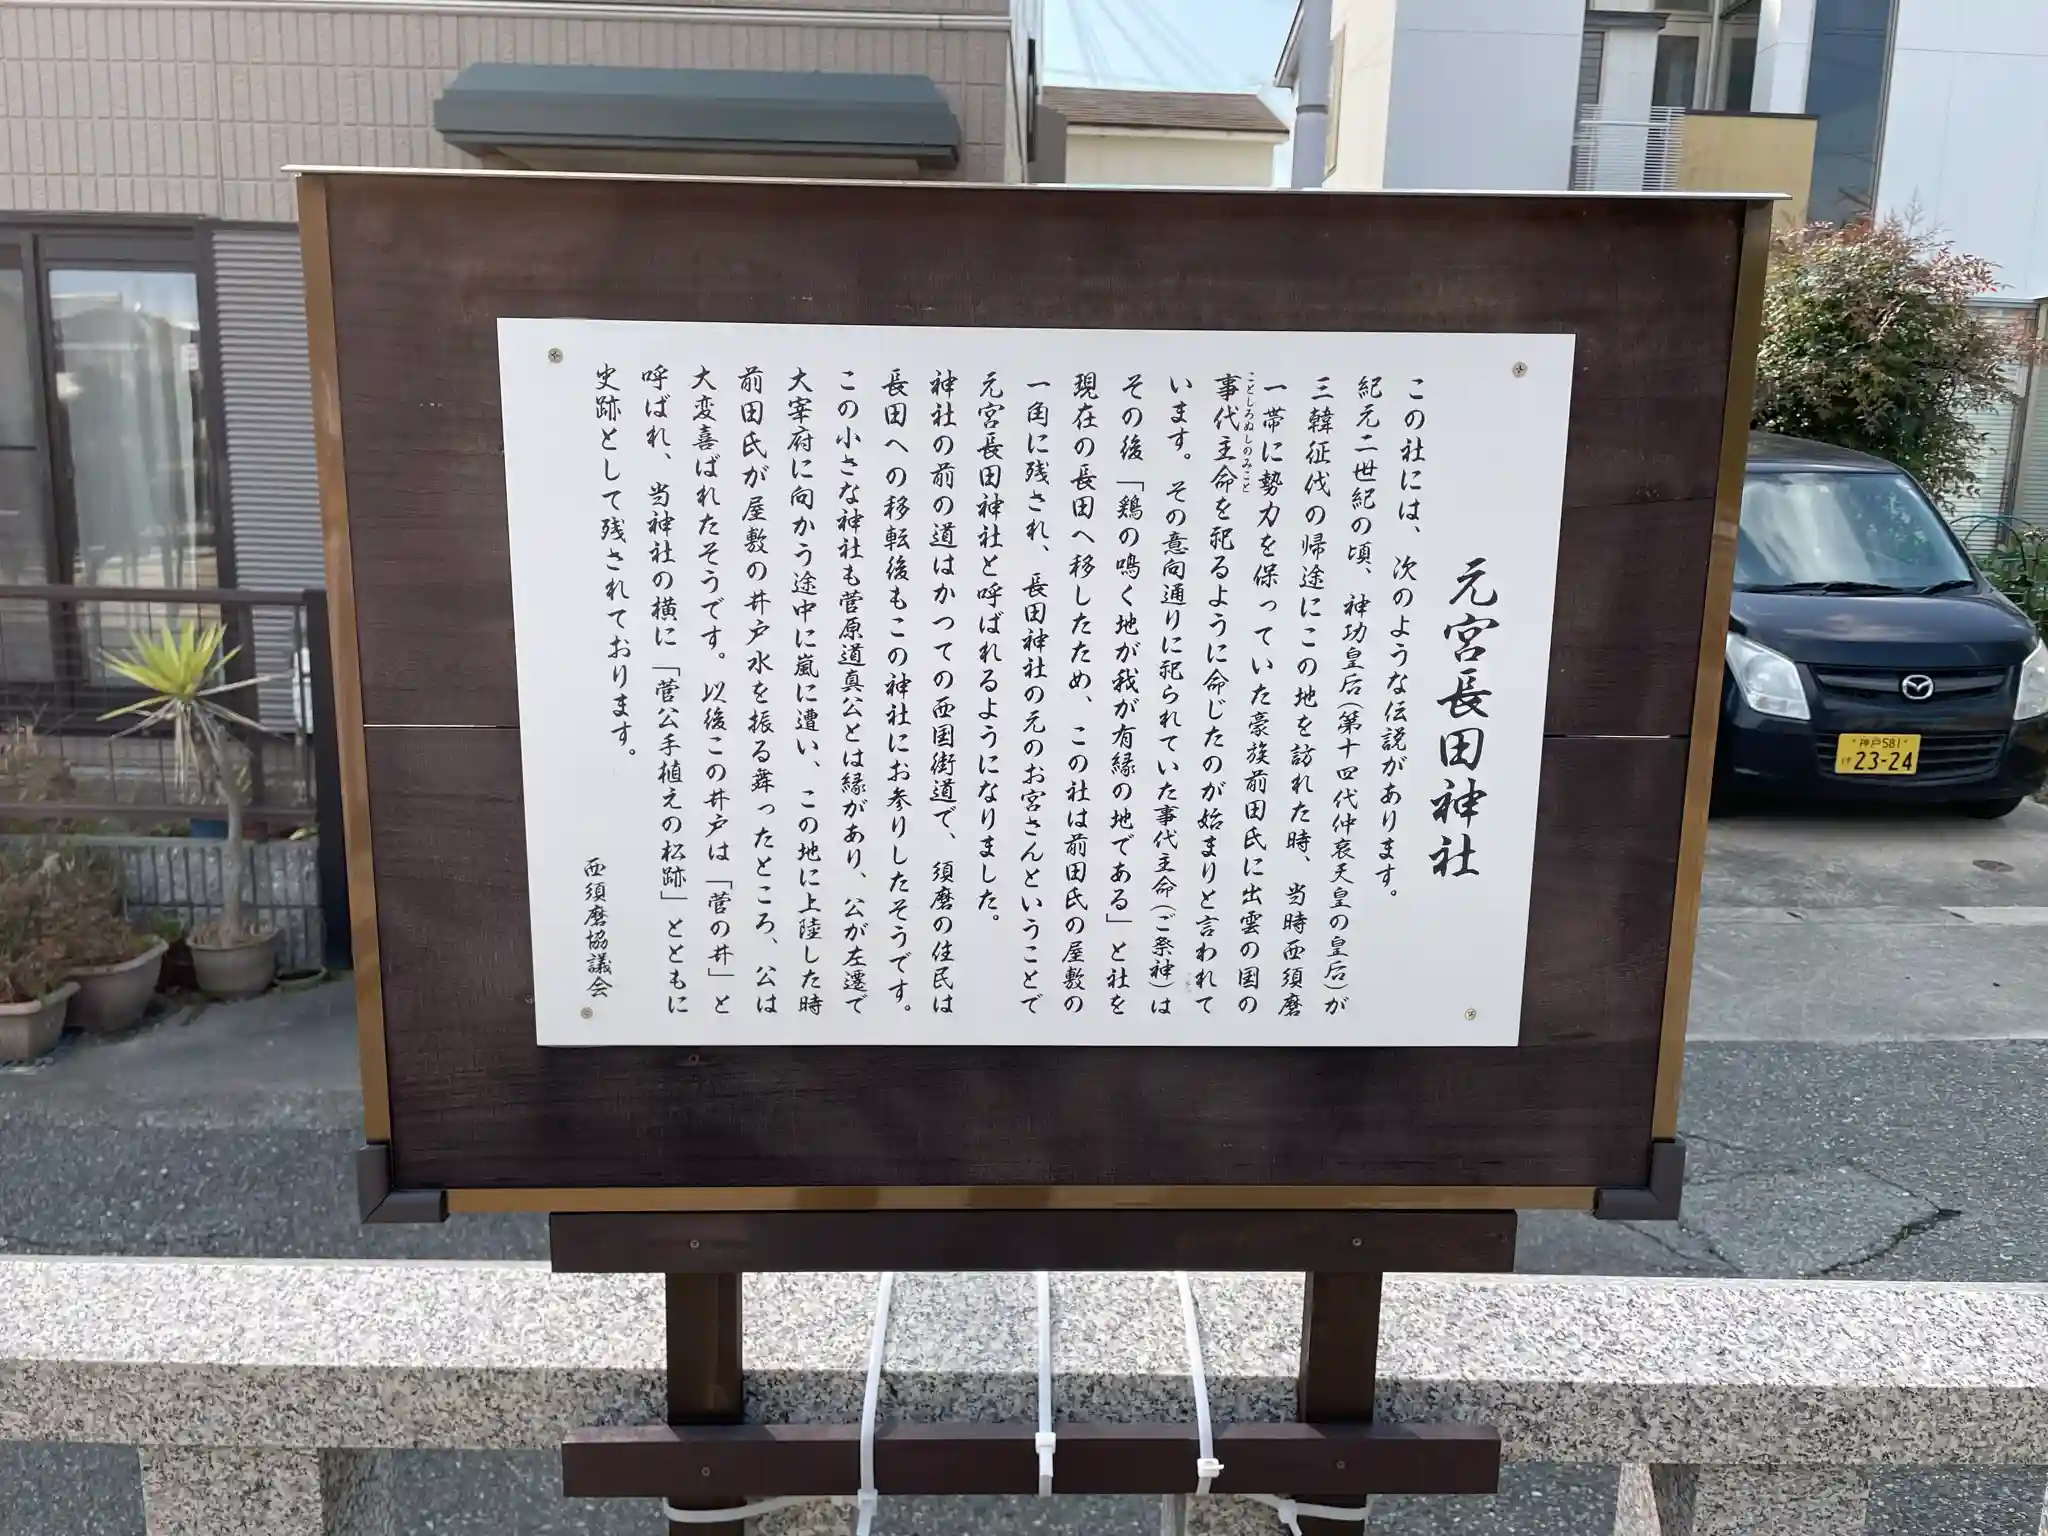 元宮長田神社
この社には、次のような伝説があります。
紀元二世紀の頃、神功皇后(第十四代仲哀天皇の皇后)が
三韓征伐の帰途にこの地を訪れた時、当時西須磨
一帯に勢力を保っていた豪族前田氏に出雲の国の
ことしろぬしのみこと
事代主命を祀るように命じたのが始まりと言われて
います。その意向通りに祀られていた事代主命(ご祭神)は
その後「鶏の鳴く地が我が有縁の地である」と社を
現在の長田へ移したため、この社は前田氏の屋敷の
一角に残され、長田神社の元のお宮さんということで
元宮長田神社と呼ばれるようになりました。
神社の前の道はかつての西国街道で、須磨の住民は
長田への移転後もこの神社にお参りしたそうです。
この小さな神社も菅原道真公とは縁があり、公が左遷で
大宰府に向かう途中に嵐に遭い、この地に上陸した時
前田氏が屋敷の井戸水を振る舞ったところ、公は
大変喜ばれたそうです。以後この井戸は「菅の井」と
呼ばれ、当神社の横に「菅公手植えの松跡」とともに
史跡として残されております。
西須磨協議会
神戸581
け 23-24